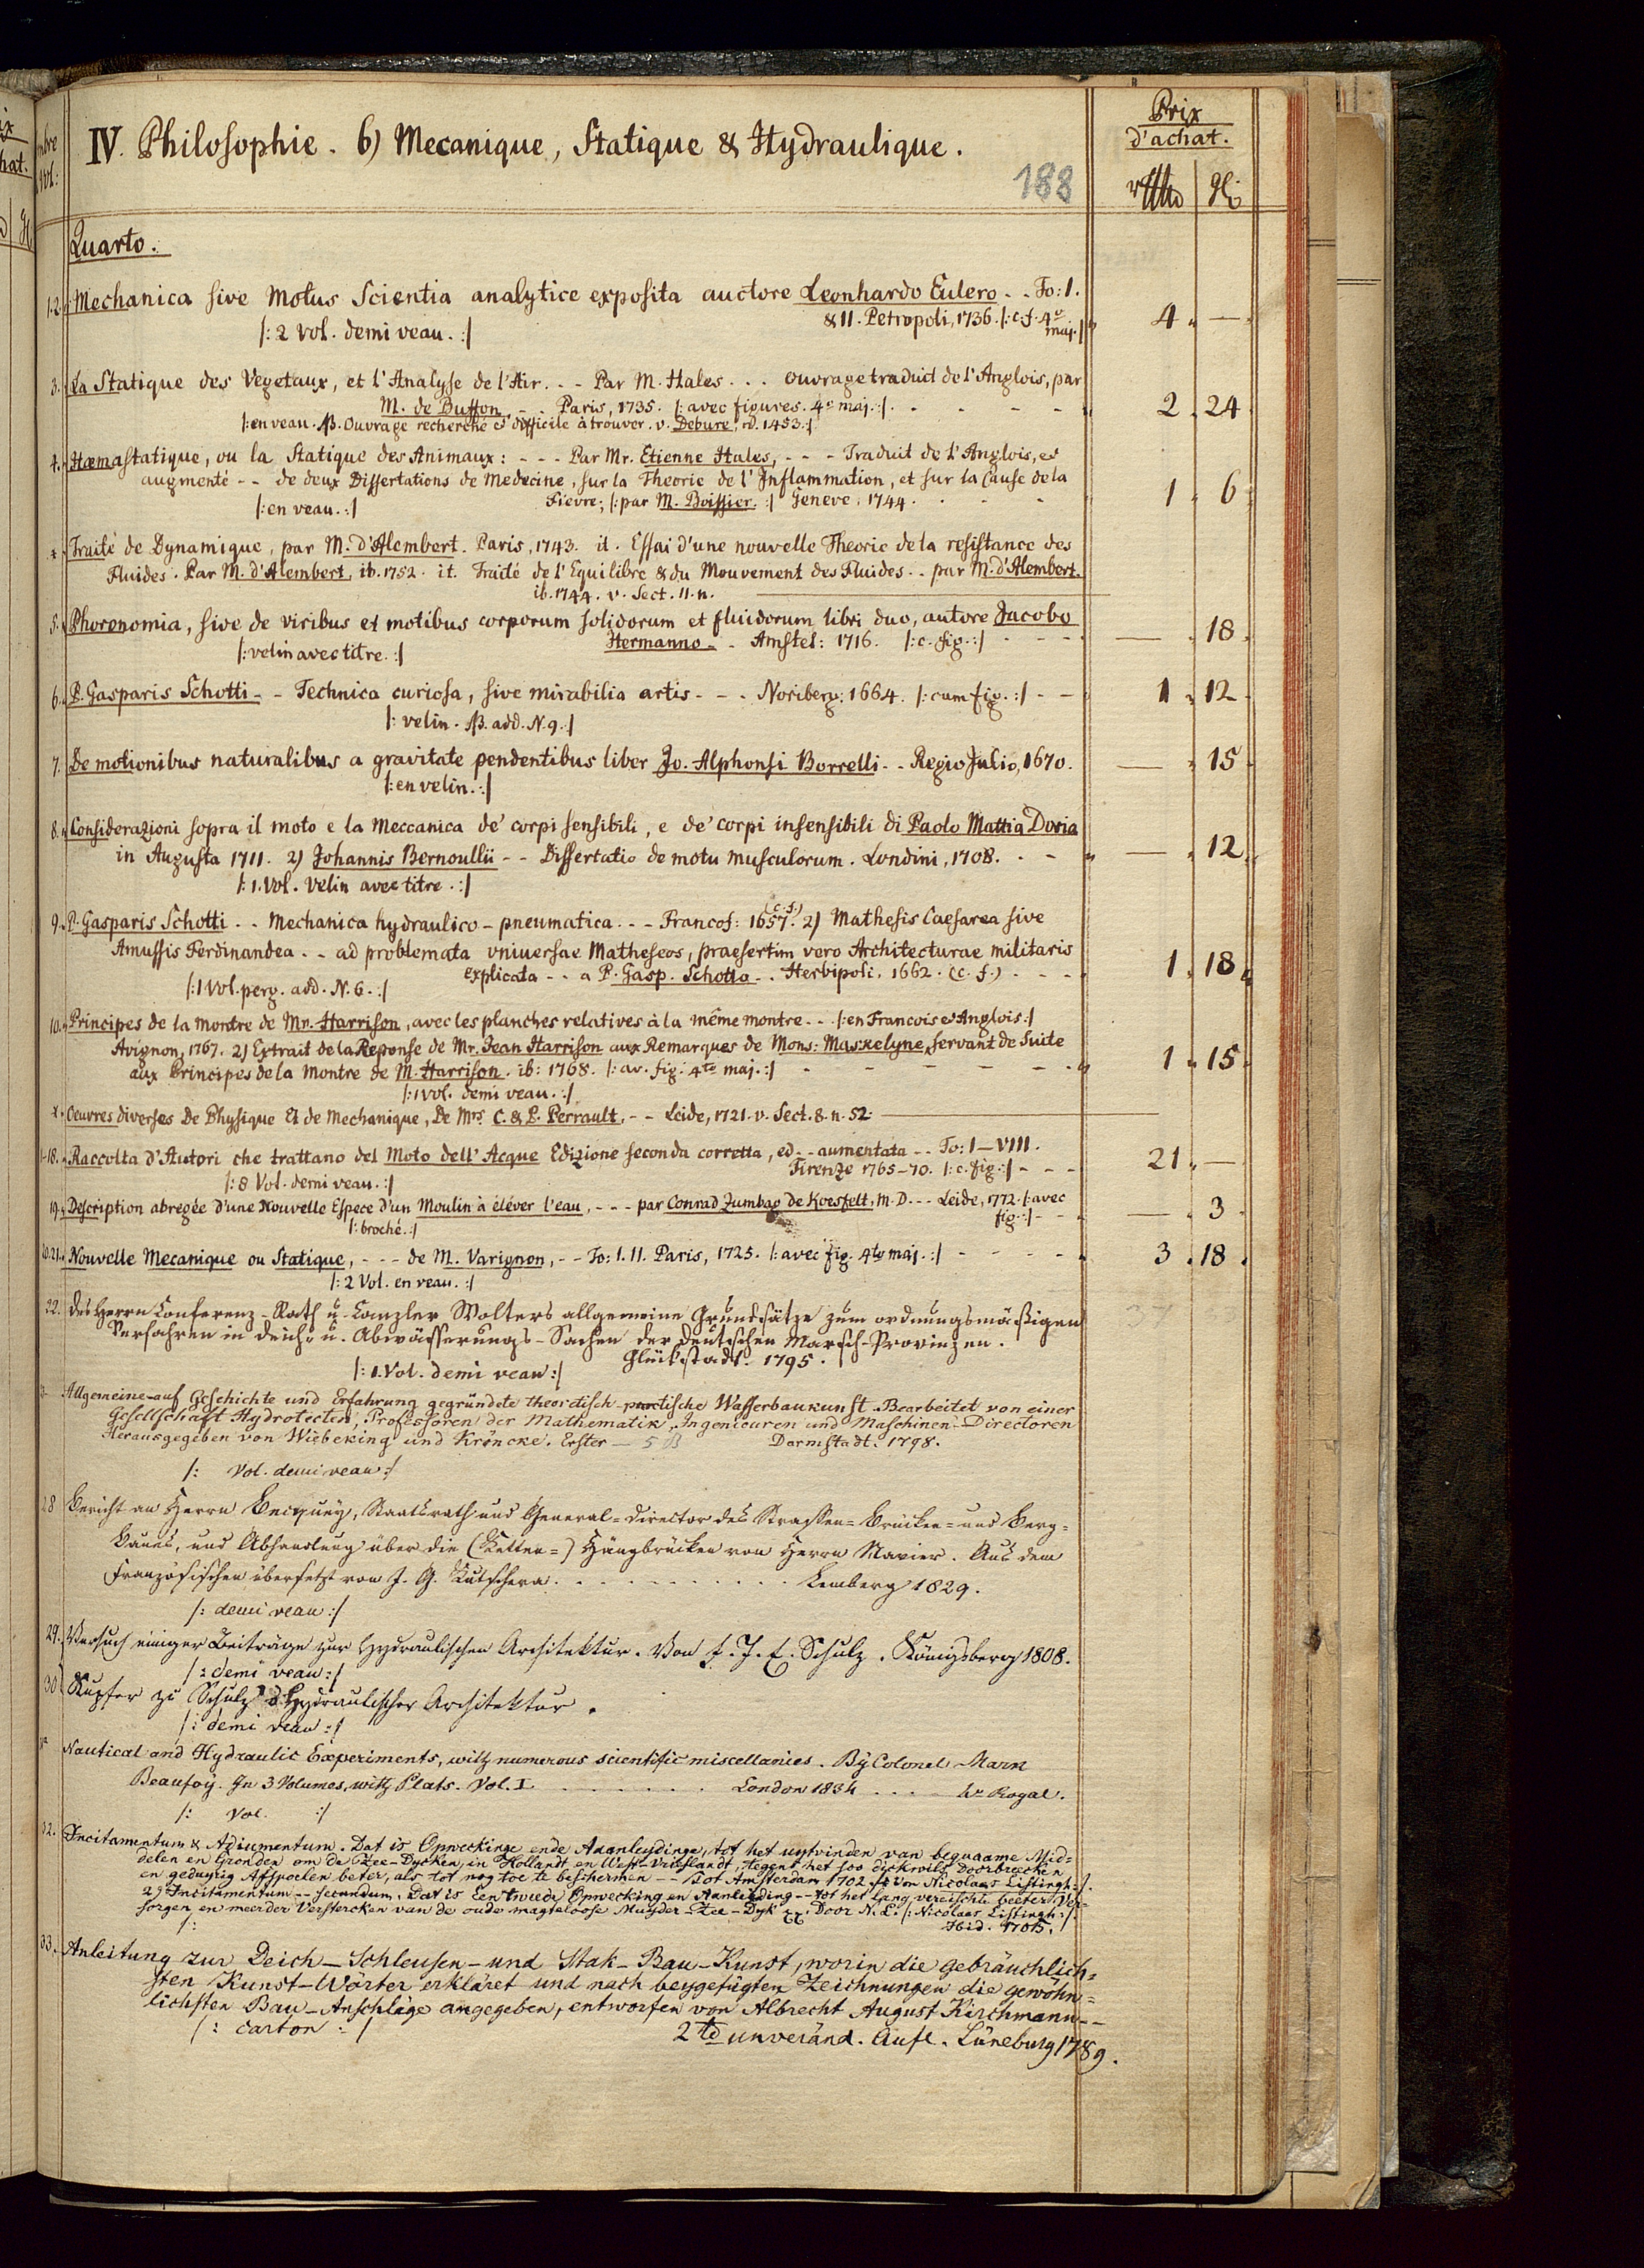 Prix
d'achat.
IV. Philosophie. 6) Mecanique, Statique & Hydraulique.
188
Quarto.
1.2. Mechanica sive Motus Scientia analytice exposita auctore Leonhardo Eulero - - To: I.
& II. Petropoli, 1736. /: c. f. 4º maj. :/ 4. —
/: 2 Vol. demi veau. :/
3. La Statique des Vegetaux, et l'Analyse de l'Air. - - Par M. Hales . . . ouvrage traduit de l'Anglois, par
M. de Buffon, - - Paris, 1735. /: avec figures. 4º maj. :/ 2. 24
/: en veau. NB. Ouvrage recherché et difficile à trouver. v. Debure, n). 1453. :/
4. Hæmastatique, ou la Statique des Animaux: - - - Par Mr. Etienne Hales, - - - Traduit de l'Anglois, et
augmenté - - de deux Dissertations de Medecine, sur la Theorie de l'Inflammation, et sur la Cause de la
Fievre; /: par M. Boissier. :/ Geneve, 1744. 1. 6
/: en veau. :/
*. Traité de Dynamique, par M. d'Alembert. Paris, 1743. it. Essai d'une nouvelle Theorie de la resistance des
Fluides. Par M. d'Alembert, ib. 1752. it. Traité de l'Equilibre & du Mouvement des Fluides - - par M. d'Alembert.
ib. 1744. v. Sect. 11. n.
5. Phoronomia, sive de viribus et motibus corporum solidorum et fluidorum libri duo, autore Jacobo
Hermanno - - Amstel: 1716. /: c. fig. :/ — . 18.
/: velin avec titre. :/
6. P. Gasparis Schotti - - Technica curiosa, sive mirabilia artis - - - Noriberg: 1664. /: cum fig. :/ - - 1. 12
/: velin. NB. add. N. 9. :/
7. De motionibus naturalibus a gravitate pendentibus liber Jo. Alphonsi Borrelli - - Regio Julio, 1670. — . 15
/: en velin. :/
8. Considerazioni sopra il moto e la Meccanica de' corpi sensibili, e de' corpi insensibili di Paolo Mattia Doria
in Augusta 1711. 2) Johannis Bernoullii - - Dissertatio de motu musculorum. Londini, 1708. - - — . 12.
/: 1. Vol. velin avec titre. :/
9. P. Gasparis Schotti - - Mechanica hydraulico-pneumatica - - - Francof: 1657. (c. f.) 2) Mathesis Caesarea sive
Amussis Ferdinandea - - ad problemata vniuersae Matheseos, praesertim vero Architecturae militaris
explicata - - a P. Gasp. Schotto - - Herbipoli, 1662. (c. f.) - - - 1. 18
/: 1 Vol. perg. add. N. 6. :/
10. Principes de la montre de Mr. Harrison, avec les planches relatives à la même montre - - /: en Francois et Anglois :/
Avignon, 1767. 2) Extrait de la Reponse de Mr. Jean Harrison aux Remarques de Mons: Maskelyne, servant de Suite
aux Principes de la Montre de M. Harrison. ib: 1768. /: av. fig. 4to maj. :/ 1. 15
/: 1 Vol. demi veau. :/
*. Oeuvres diverses De Physique Et de Mechanique, De Mrs. C. & P. Perrault, - - Leide, 1721. v. Sect. 8. n. 52.
11-18. Raccolta d'Autori che trattano del Moto dell' Acque Edizione seconda corretta, ed - - aumentata - - To: I—VIII.
Firenze 1765-70. /: c. fig. :/ - - - 21. —
/: 8 Vol. demi veau. :/
19. Description abregée d'une Nouvelle Espece d'un Moulin à éléver l'eau, - - - par Conrad Zumbag de Koesfelt, M. D. - - - Leide, 1772. /: avec
fig. :/ - - — . 3
/: broché. :/
20.21. Nouvelle Mecanique ou Statique, - - - de M. Varignon, - - To: I. II. Paris, 1725. /: avec fig. 4to maj. :/ 3. 18.
/: 2 Vol. en veau. :/
22. Des Herrn Conferenz-Rath u. Canzler Wolters allgemeine Grundsätze zum ordnungsmäßigen
Verfahren in Deich- u. Abwässerungs-Sachen der deutschen Marsch-Provinzen.
Glückstadt. 1795.
/: 1. Vol. demi veau :/
Allgemeine auf Geschichte und Erfahrung gegründete theoretisch-practische Wasserbaukunst. Bearbeitet von einer
Gesellschaft Hydrotecten, Professoren der Mathematik, Ingenieuren und Maschinen-Directoren
Herausgegeben von Wiebeking und Kröncke. Erster — 5 B Darmstadt. 1798.
/: Vol. demi veau :/
28 Bericht an Herrn Becquey, Staatsrath und General-Director des Strassen- Brücken- und Berg-
Baues, und Abhandlung über die (Ketten-) Hängbrücken von Herrn Navier. Aus dem
Französischen übersetzt von J. G. Kutschera. . . . . . . . . . . Lemberg 1829.
/: demi veau :/
29. Versuch einiger Beiträge zur Hydraulischen Architektur. Von F. J. E. Schulz. Königsberg 1808.
/: demi veau :/
30 Kupfer zu Schulz's Hydraulischer Architektur.
/: demi veau :/
Nautical and Hydraulic Experiments, with numerous scientific miscellanies. By Colonel Mark
Beaufoy. In 3 Volumes, with Plats. Vol. I. . . . . . . London 1834 . . . 4º Rogal.
/: Vol. :/
32. Incitamentum & Adiumentum. Dat is Opweckinge ende Aanleydinge, tot het uytvinden van bequaame Mid-
delen en Gronden om de Zee-Dycken, in Hollandt en West-Vrieslandt, tegens het soo dickwils Doorbreecken
en gedurig Affspoelen beter, als tot nog toe te beschermen - - Tot Amsterdam 1702. /: Von Nicolaas Listingh :/.
2) Incitamentum - - secundum. Dat is Een tweede Opwecking en Aanleiding - - tot het lang vereischte beeter Ver-
sorgen en meerder Verstercken van de oude magteloose Muyder-Zee-Dyk. Door N. L. /: Nicolaas Listingh :/.
/: Ibid. 1705.
33. Anleitung zur Deich- Schleusen- und Stak-Bau-Kunst, worin die gebräuchlich-
sten Kunst-Wörter erkläret und nach beygefügten Zeichnungen die gewöhn-
lichsten Bau-Anschläge angegeben, entworfen von Albrecht August Kirchmann - -
/: carton :/ 2te unveränd. Aufl. Lüneburg 1789.